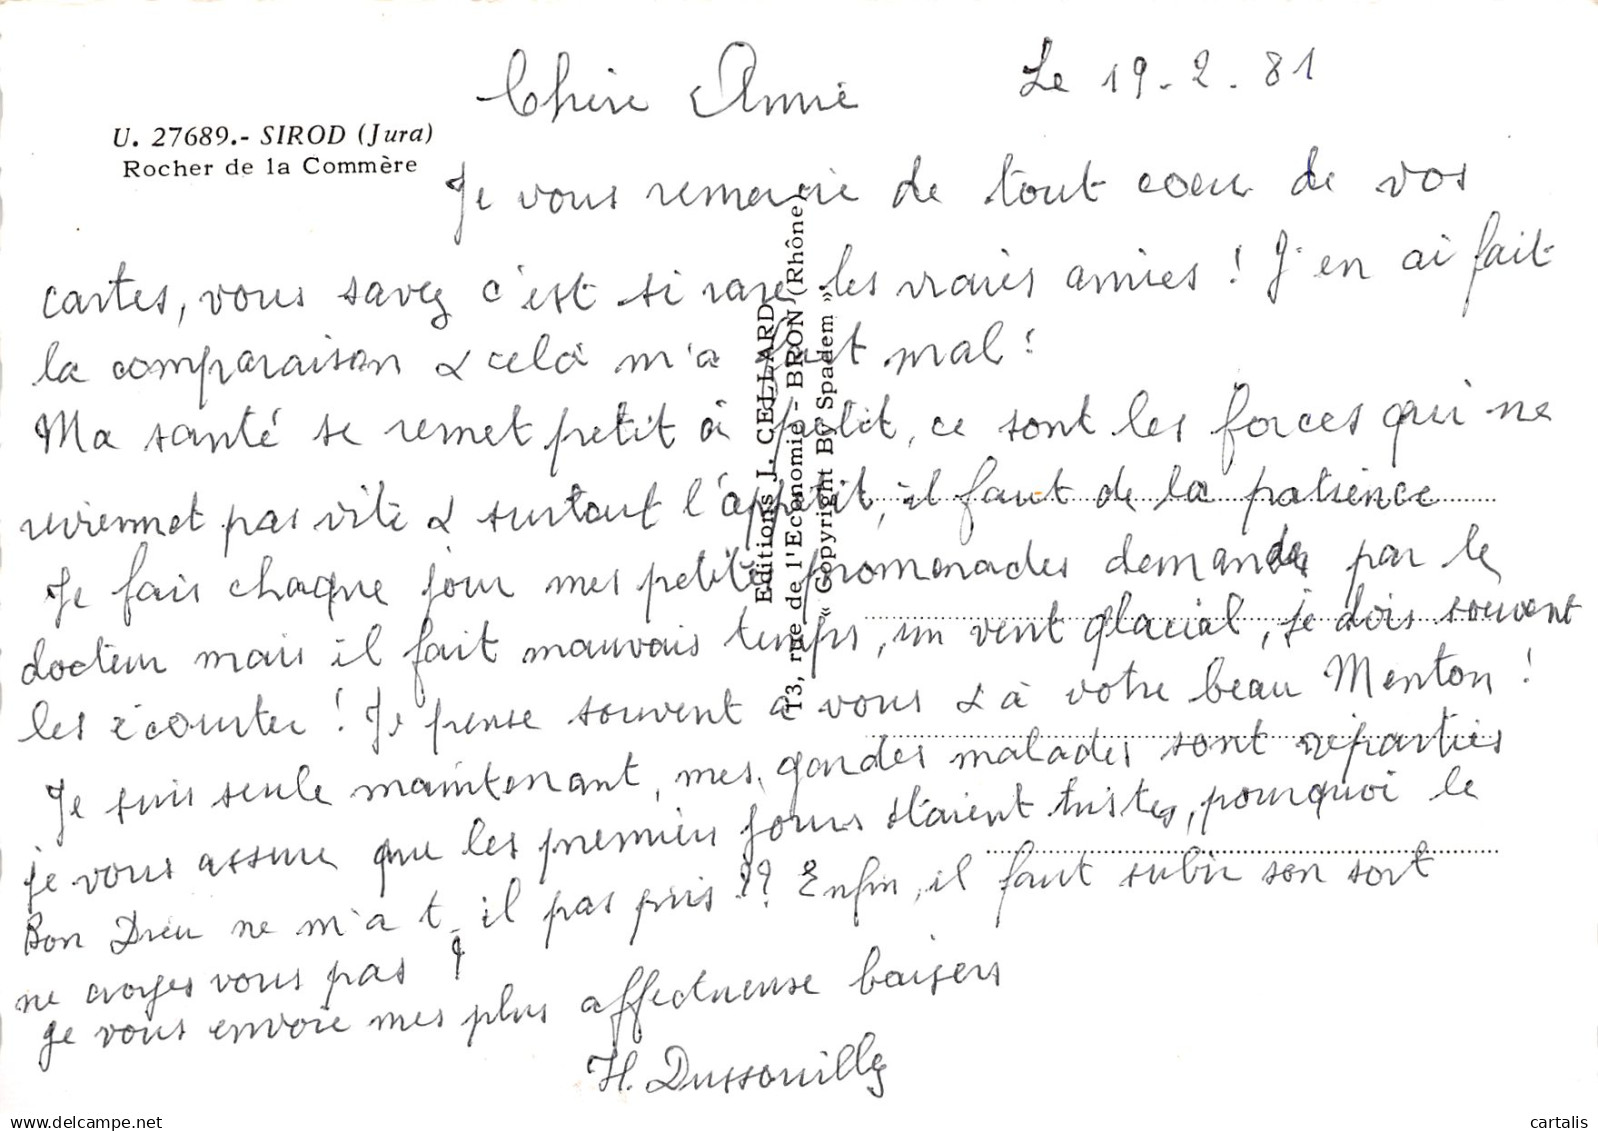 Chère Annie
Le 19-2-81
U. 27689.- SIROD (Jura)
Rocher de la Commère
Je vous remercie de tout coeur de vos
cartes, vous savez c'est si rare les vraies amies ! J'en ai fait
la comparaison & celà m'a fait mal !
Ma santé se remet petit à petit, ce sont les forces qui ne
reviennet pas vite & surtout l'appétit, il faut de la patience
Je fais chaque jour mes petites promenades demandés par le
docteur mais il fait mauvais temps, un vent glacial, je dois souvent
les écourter ! Je pense souvent à vous & à votre beau Menton !
Je suis seule maintenant, mes gardes malades sont réparties
je vous assure que les premiers jours étaient tristes, pourquoi le
Bon Dieu ne m'a t-il pas pris ?? Enfin, il faut subir son sort
ne croyez vous pas ?
Je vous envoie mes plus affectueuse baisers
H. Dussouilly
Editions J. CELLARD
13, rue de l'Economie - BRON (Rhône)
« Copyright By Spadem »
delcampe.net
cartalis